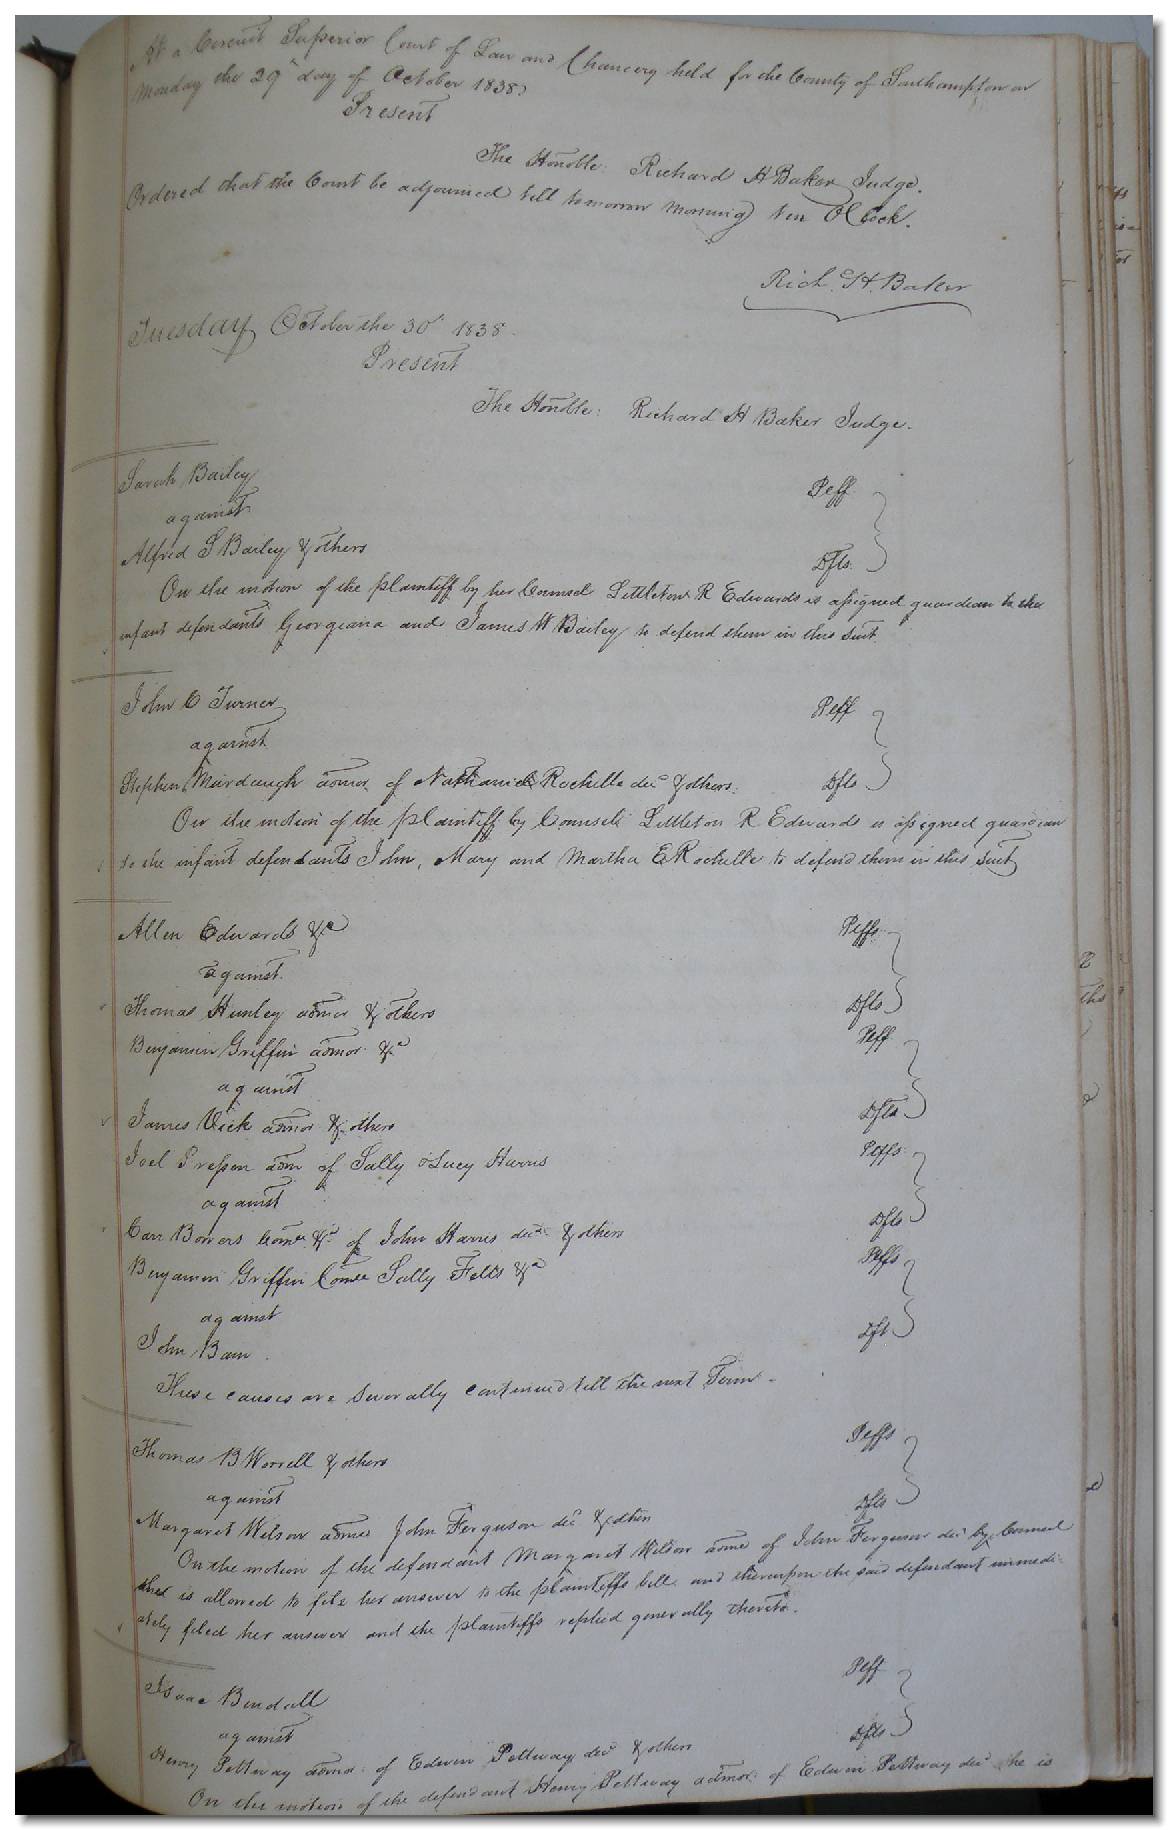 At a Circuit Superior Court of Law and Chancery held for the County of Southampton on
Monday the 29th day of October 1838
Present
The Honble: Richard H Baker Judge.
Ordered that the Court be adjourned till tomorrow morning ten OClock.
Rich. H. Baker
Tuesday October the 30th 1838.
Present
The Honble: Richard H Baker Judge.
Sarah Bailey Plff
against
Alfred S Bailey & others Dfts.
On the motion of the plaintiff by her Counsel Littleton R Edwards is assigned guardian to the
infant defendants Georgiana and James W Bailey to defend them in this suit.
John C Turner Plff
against
Stephen Murdaugh admor of Nathaniel Rochelle decd & others. Dfts
On the motion of the plaintiff by Counsel Littleton R Edwards is assigned guardian
to the infant defendants John, Mary and Martha E Rochelle to defend them in this suit
Allen Edwards &c Plffs
against
Thomas Hunley admor & others Dfts
Benjamin Griffin admor &c Plff
against
James Vick admor & others Dfts
Joel Presson adm of Sally & Lucy Harris Plffs
against
Carr Bowers Comee &c of John Harris decd & others Dfts
Benjamin Griffin Comee Sally Felts &c Plffs
against
John Barn Dft
These causes are severally continued till the next Term.
Thomas B Worrell & others Plffs
against
Margaret Wilson admx John Ferguson decd & others Dfts
On the motion of the defendant Margaret Wilson admx of John Ferguson decd by Counsel
she is allowed to file her answer to the plaintiffs bill and thereupon the said defendant immedi-
ately filed her answer and the plaintiffs replied generally thereto.
Isaac Bendall Plff
against
Henry Pettway admor of Edwin Pettway decd & others Dfts
On the motion of the defendant Henry Pettway admor of Edwin Pettway decd he is